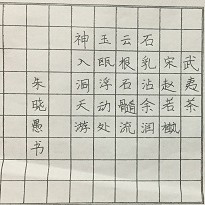 武夷茶
宋赵若槸
石乳沾余润
云根石髓流
玉瓯浮动处
神入洞天游
朱晓愚书